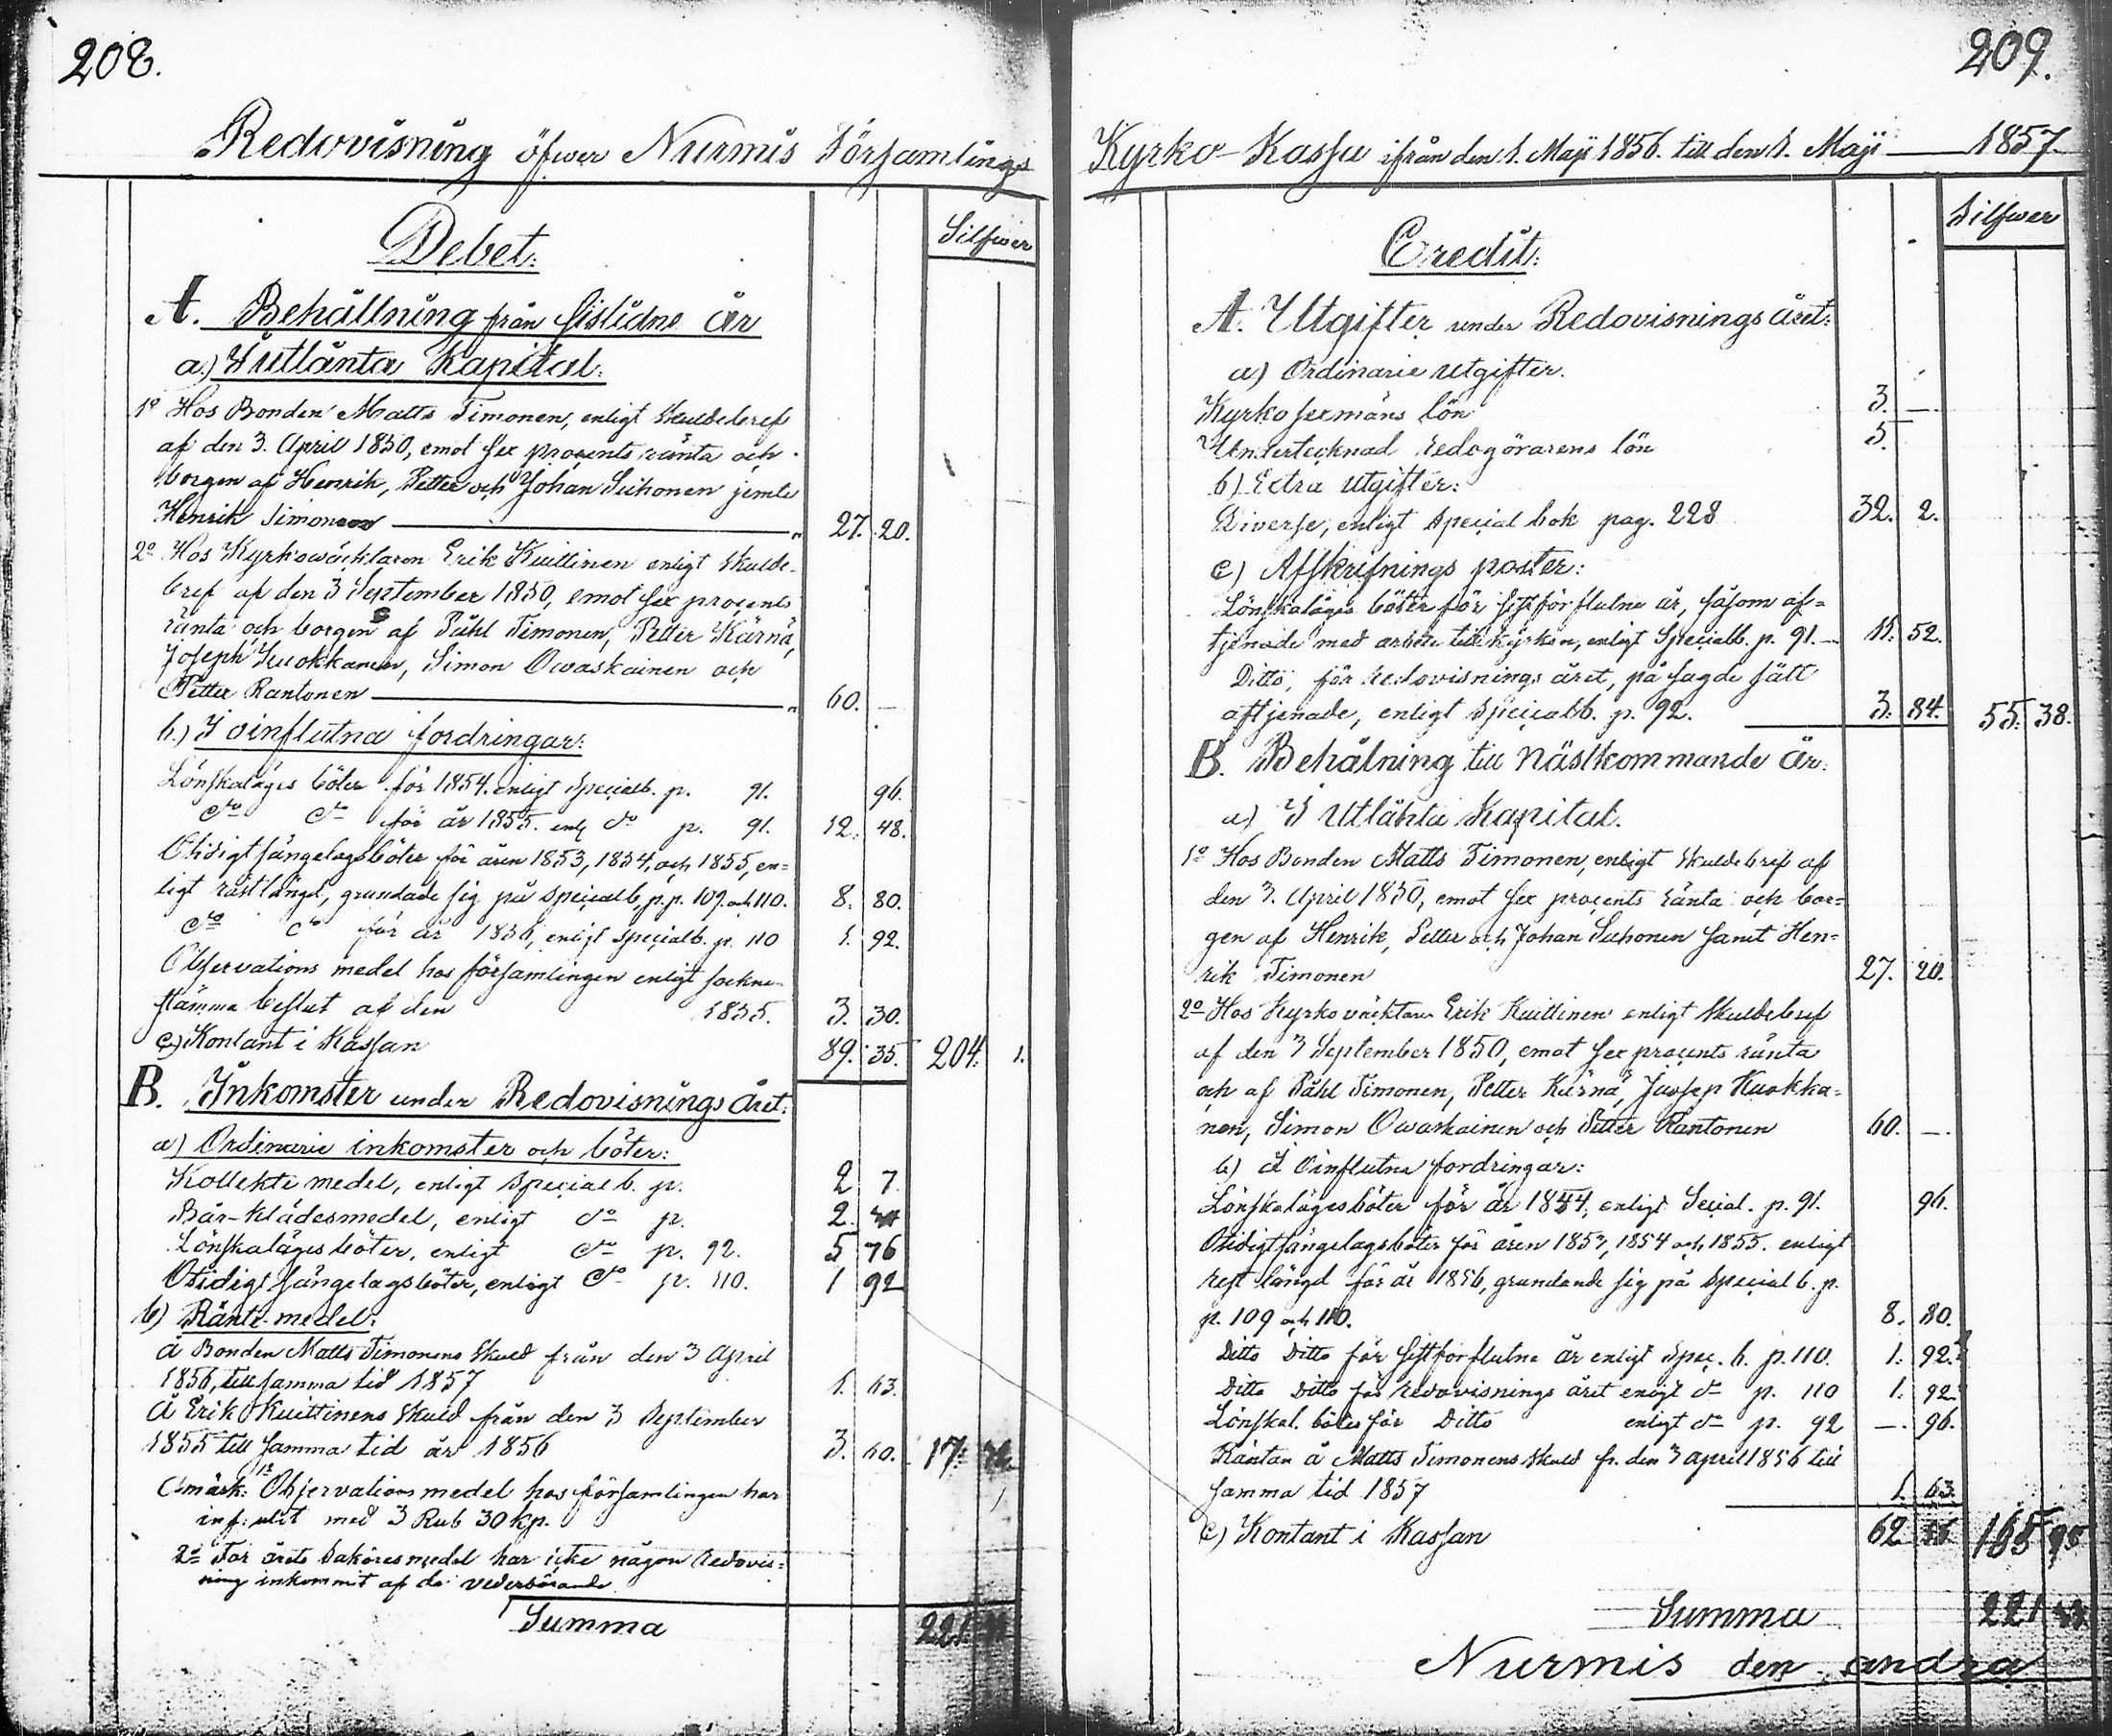 208.
Redovisning öfwer Nurmis Församlings
Debet.
Silfwer
A. Behållning från sistlidne år
a) I utlånta Kapital:
1o Hos Bonden Matts Timonen, enligt Skuldebref
af den 3. April 1850, emot sex procents ränta och
borgen af Henrik, Petter och Johan Suhonen jemte
Henrik Timonen 27. 20.
2o Hos Kyrkowäcktaren Erik Kuittinen enligt Skulde-
bref af den 3 September 1850, emot sex procents
ränta och borgen af Påhl Timonen, Petter Kärnä,
Joseph Kuokkanen, Simon Owaskainen och
Petter Rantonen 60. —
b.) I oinflutna fordringar:
Lönskaläges böter för 1854. enligt Specialb. p. 91. 96.
do do för år 1855. enl do p. 91. 12. 48.
Otidigt sängelagsböter för åren 1853, 1854, och 1855, en-
ligt rästlängd, grundade sig på Specialb, p.p. 109. och 110. 8. 80.
do do för år 1856, enligt Specialb. p. 110 1. 92.
Observations medel hos församlingen enligt sockne-
stämma beslut af den 1855. 3. 30.
c) Kontant i Kassan 89. 35. 204. 1.
B. Inkomster under Redovisnings året:
a) Ordinarie inkomster och böter:
Kollekte medel, enligt Special b. p. 2 7.
Bår-klädesmedel, enligt do p. 2.
Lönskaläges böter, enligt do p. 92. 5 76
Otidigt sängelagsböter, enligt do p. 110. 1 92
b) Ränte-medel:
å Bonden Matts Timonens Skuld från den 3 April
1856, till samma tid 1857 1. 63.
å Erik Kuittinens Skuld från den 3 September
1855 till samma tid år 1856 3. 60. 17.
Anmärk: 1o Observations medel hos församlingen har
influtit med 3 Rub 30 kp.
2o För årets medel har icke någon Redovis-
ning inkommit af de vederbörande.
Summa 221.
209.
Kyrko-Kassa ifrån den 1. Maji 1856. till den 1. Maji 1857.
Credit:
Silfwer
A. Utgifter under Redovisnings året:
a) Ordinarie utgifter.
Kyrko sexmäns lön 3. —
Undertecknad redogörarens lön 5.
b) Extra utgifter:
Diverse, enligt Special bok pag. 228 32. 2.
c) Afskrifnings poster:
Lönskaläges böter för sistförflutne år, såsom af-
tjenade med arbete till kyrkan, enligt Specialb. p. 91. — 11. 52.
Ditto, för redovisnings året, på sagde sätt
aftjenade, enligt Specialb. p. 92. 3. 84. 55. 38.
B. Behålning till nästkommande år:
a) I Utlånta Kapital.
1o Hos Bonden Matts Timonen, enligt Skuldebref af
den 3. April 1850, emot sex procents ränta och bor-
gen af Henrik, Petter och Johan Suhonen samt Hen-
rik Timonen 27. 20.
2o Hos Kyrkoväcktaren Erik Kuittinen enligt Skuldebref
af den 3 September 1850, emot sex procents ränta
och af Påhl Timonen, Petter Kärnä, Jussep Kuokka-
nen, Simon Owaskainen och Petter Rantonen 60. —
b) I Oinflutna fordringar:
Lönskalägesböter för år 1854, enligt Secial. p. 91. 96.
Otidigtsängelagsböter för åren 1853, 1854 och 1855. enligt
rest längd för år 1856, grundande sig på Special b. p.
p. 109 och 110. 8. 80.
Ditto Ditto för sistförflutne år enligt Spec. b. p. 110. 1. 92.
Ditto Ditto för redovisnings året enligt do p. 110 1. 92.
Lönskal. böter för Ditto enligt do p. 92 — 96.
Räntan å Matts Timonens Skuld fr. den 3 april 1856 till
samma tid 1857 1. 63.
c) Kontant i Kassan 62 165 95
Summa 221
Nurmis den andra